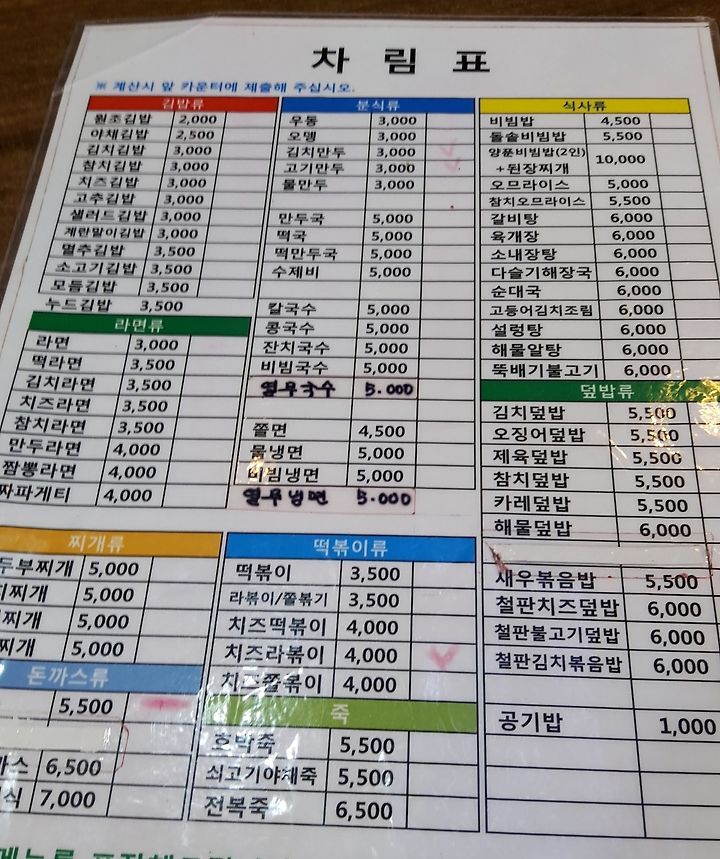 차 림 표
※ 계산시 앞 카운터에 제출해 주십시오.
김밥류
원조김밥 2,000
야채김밥 2,500
김치김밥 3,000
참치김밥 3,000
치즈김밥 3,000
고추김밥 3,000
샐러드김밥 3,000
계란말이김밥 3,000
멸추김밥 3,500
소고기김밥 3,500
모듬김밥 3,500
누드김밥 3,500
라면류
라면 3,000
떡라면 3,500
김치라면 3,500
치즈라면 3,500
참치라면 3,500
만두라면 4,000
짬뽕라면 4,000
짜파게티 4,000
찌개류
두부찌개 5,000
치찌개 5,000
찌개 5,000
찌개 5,000
돈까스류
5,500
까스 6,500
식 7,000
분식류
우동 3,000
오뎅 3,000
김치만두 3,000
고기만두 3,000
물만두 3,000
만두국 5,000
떡국 5,000
떡만두국 5,000
수제비 5,000
칼국수 5,000
콩국수 5,000
잔치국수 5,000
비빔국수 5,000
열무국수 5.000
쫄면 4,500
물냉면 5,000
비빔냉면 5,000
열무냉면 5.000
떡볶이류
떡볶이 3,500
라볶이/쫄볶기 3,500
치즈떡볶이 4,000
치즈라볶이 4,000
치즈쫄볶이 4,000
죽
호박죽 5,500
쇠고기야채죽 5,500
전복죽 6,500
식사류
비빔밥 4,500
돌솥비빔밥 5,500
양푼비빔밥(2인)
+된장찌개 10,000
오므라이스 5,000
참치오므라이스 5,500
갈비탕 6,000
육개장 6,000
소내장탕 6,000
다슬기해장국 6,000
순대국 6,000
고등어김치조림 6,000
설렁탕 6,000
해물알탕 6,000
뚝배기불고기 6,000
덮밥류
김치덮밥 5,500
오징어덮밥 5,500
제육덮밥 5,500
참치덮밥 5,500
카레덮밥 5,500
해물덮밥 6,000
새우볶음밥 5,500
철판치즈덮밥 6,000
철판불고기덮밥 6,000
철판김치볶음밥 6,000
공기밥 1,000